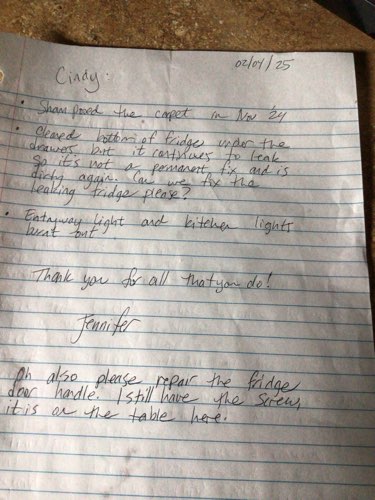 02/04/25
Cindy:
• Shampooed the carpet in Nov '24
• Cleaned bottom of fridge under the
drawers but it continues to leak
so it's not a permanent fix and is
dirty again. Can we fix the
leaking fridge please?
• Entryway light and kitchen lights
burnt out.
Thank you for all that you do!
Jennifer
Oh also please repair the fridge
door handle. I still have the screw,
it is on the table here.